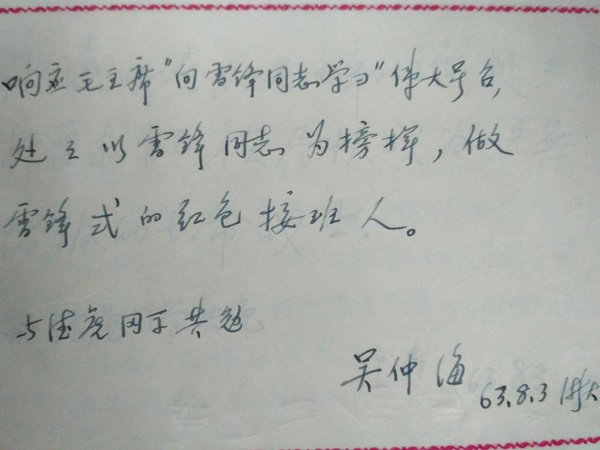 响应毛主席“向雷锋同志学习”伟大号召,
处处以雷锋同志为榜样,做
雷锋式的红色接班人。
与德尧同学共勉
吴仲海
63.8.3 浙大